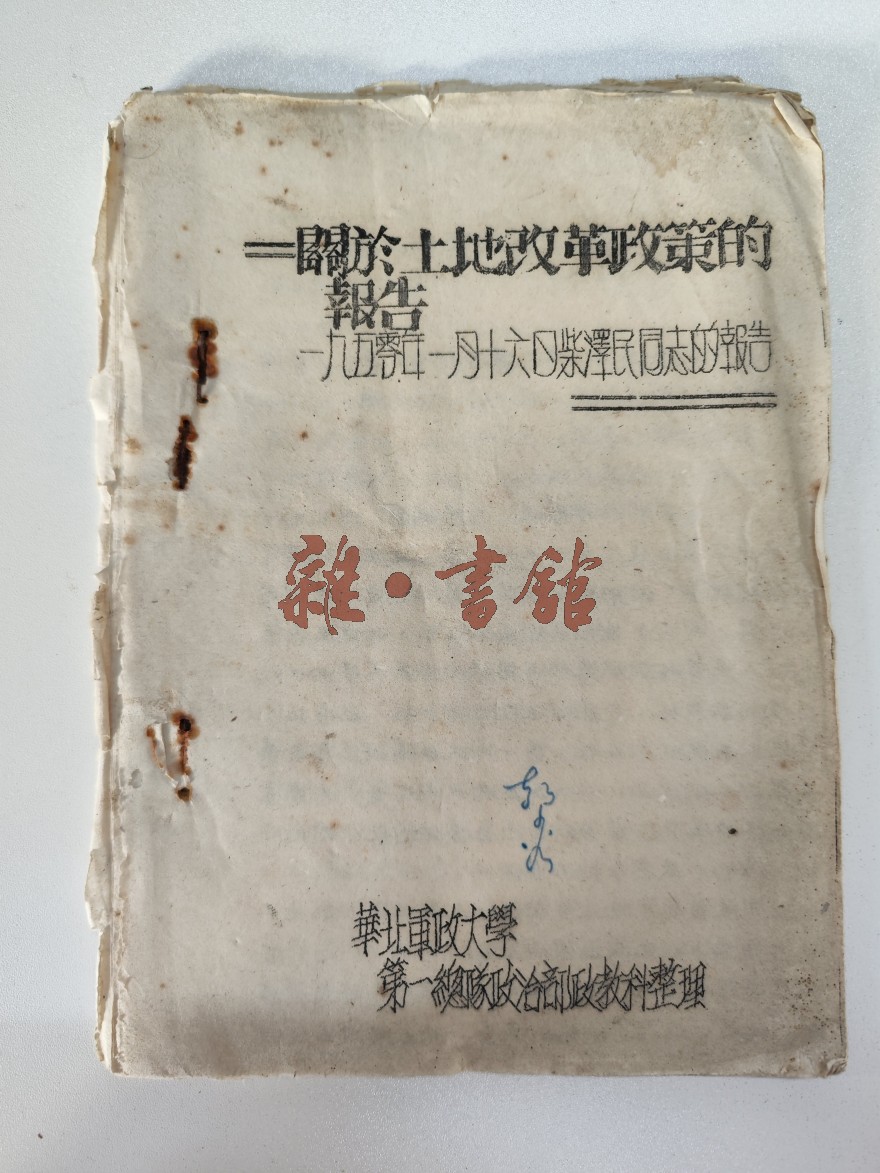 =關於土地改革政策的
報告
一九五零年一月十六日柴澤民同志的報告
雜·書館
華北軍政大學
第一總隊政治部政教科整理